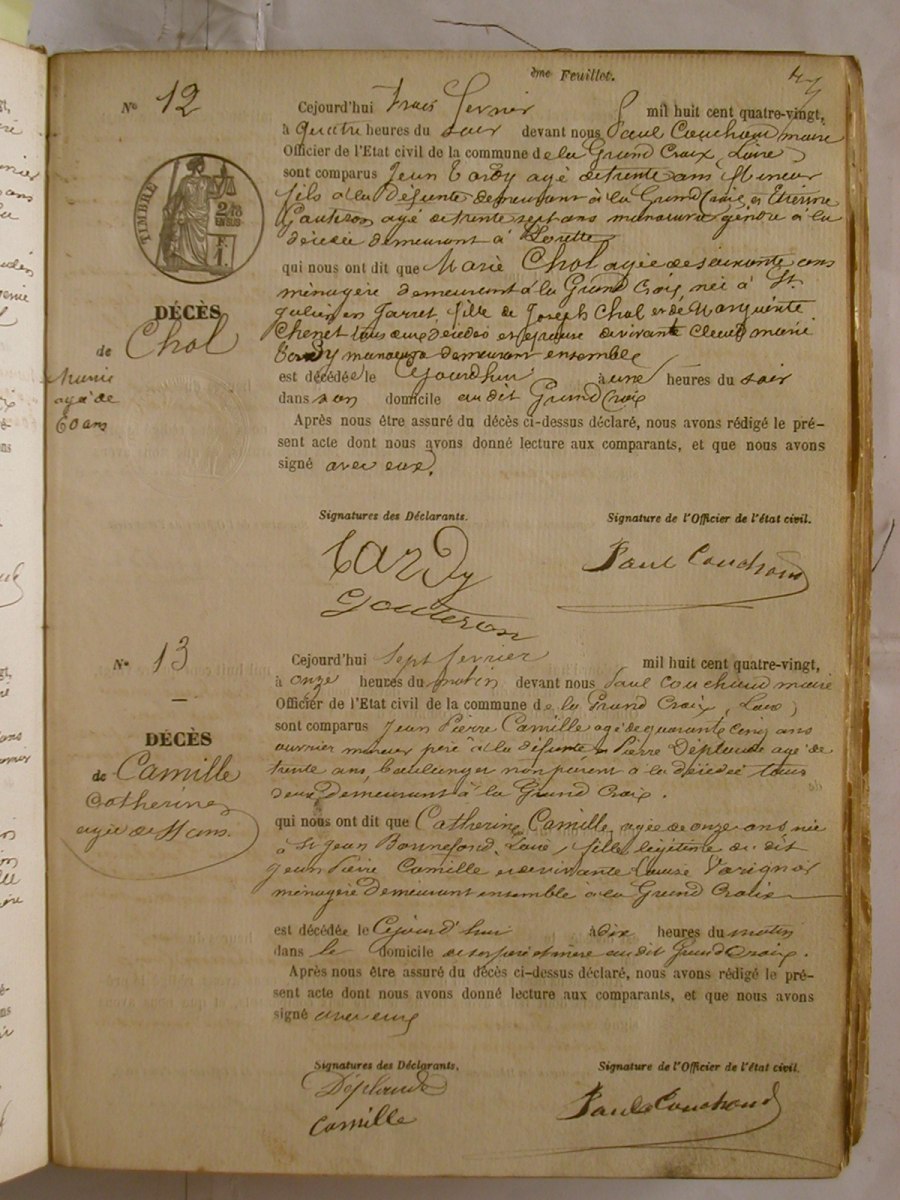 ème Feuillet.
7
N° 12
Cejourd'hui trois fevrier mil huit cent quatre-vingt,
à quatre heures du soir devant nous Paul Couchoud maire
Officier de l'Etat civil de la commune de la Grand Croix, Loire,
sont comparus Jean Tardy agé de trente ans Mineur
fils à la Défunte demeurant à la Grand Croix, et Etienne
Gouteron agé de trente sept ans manœuvre gendre à la
décédée demeurant à Lorette
qui nous ont dit que Marie Chol agée de soixante ans
ménagère demeurant à la Grand Croix, née à St
Julien en Jarret, fille de Joseph Chol et de Marguerite
Chenet tous deux décédés et épouse de vivant Claude marie
Tardy manœuvre demeurant ensemble
est décédée le Cejourdhui à une heures du soir
dans son domicile au dit Grand Croix
Après nous être assuré du décès ci-dessus déclaré, nous avons rédigé le pré-
sent acte dont nous avons donné lecture aux comparants, et que nous avons
signé avec eux.
TIMBRE
DÉCÈS
de Chol
Marie
agé de
60 ans
Signatures des Déclarants.
Signature de l'Officier de l'état civil.
Tardy
Gouteron
Paul Couchoud
N° 13
Cejourd'hui sept fevrier mil huit cent quatre-vingt,
à onze heures du matin devant nous Paul Couchoud maire
Officier de l'Etat civil de la commune de la Grand Croix, Loire,
sont comparus Jean Pierre Camille agé de quarante cinq ans
ouvrier mineur père à la défunte et Pierre Déplaude agé de
trente ans, boulanger non parent à la décédée tous
deux demeurant à la Grand Croix.
qui nous ont dit que Catherine Camille, agée de onze ans née
à St Jean Bonnefond, Loire, fille légitime du dit
Jean Pierre Camille et de vivante Louise Varignon
ménagère demeurant ensemble à la Grand Croix
est décédée le Cejourd'hui à dix heures du matin
dans le domicile de ses père et mère au dit Grand Croix.
Après nous être assuré du décès ci-dessus déclaré, nous avons rédigé le pré-
sent acte dont nous avons donné lecture aux comparants, et que nous avons
signé avec eux
DÉCÈS
de Camille
Catherine
agée de 11 ans.
Signatures des Déclarants.
Signature de l'Officier de l'état civil.
Déplaude
Camille
Paul Couchoud